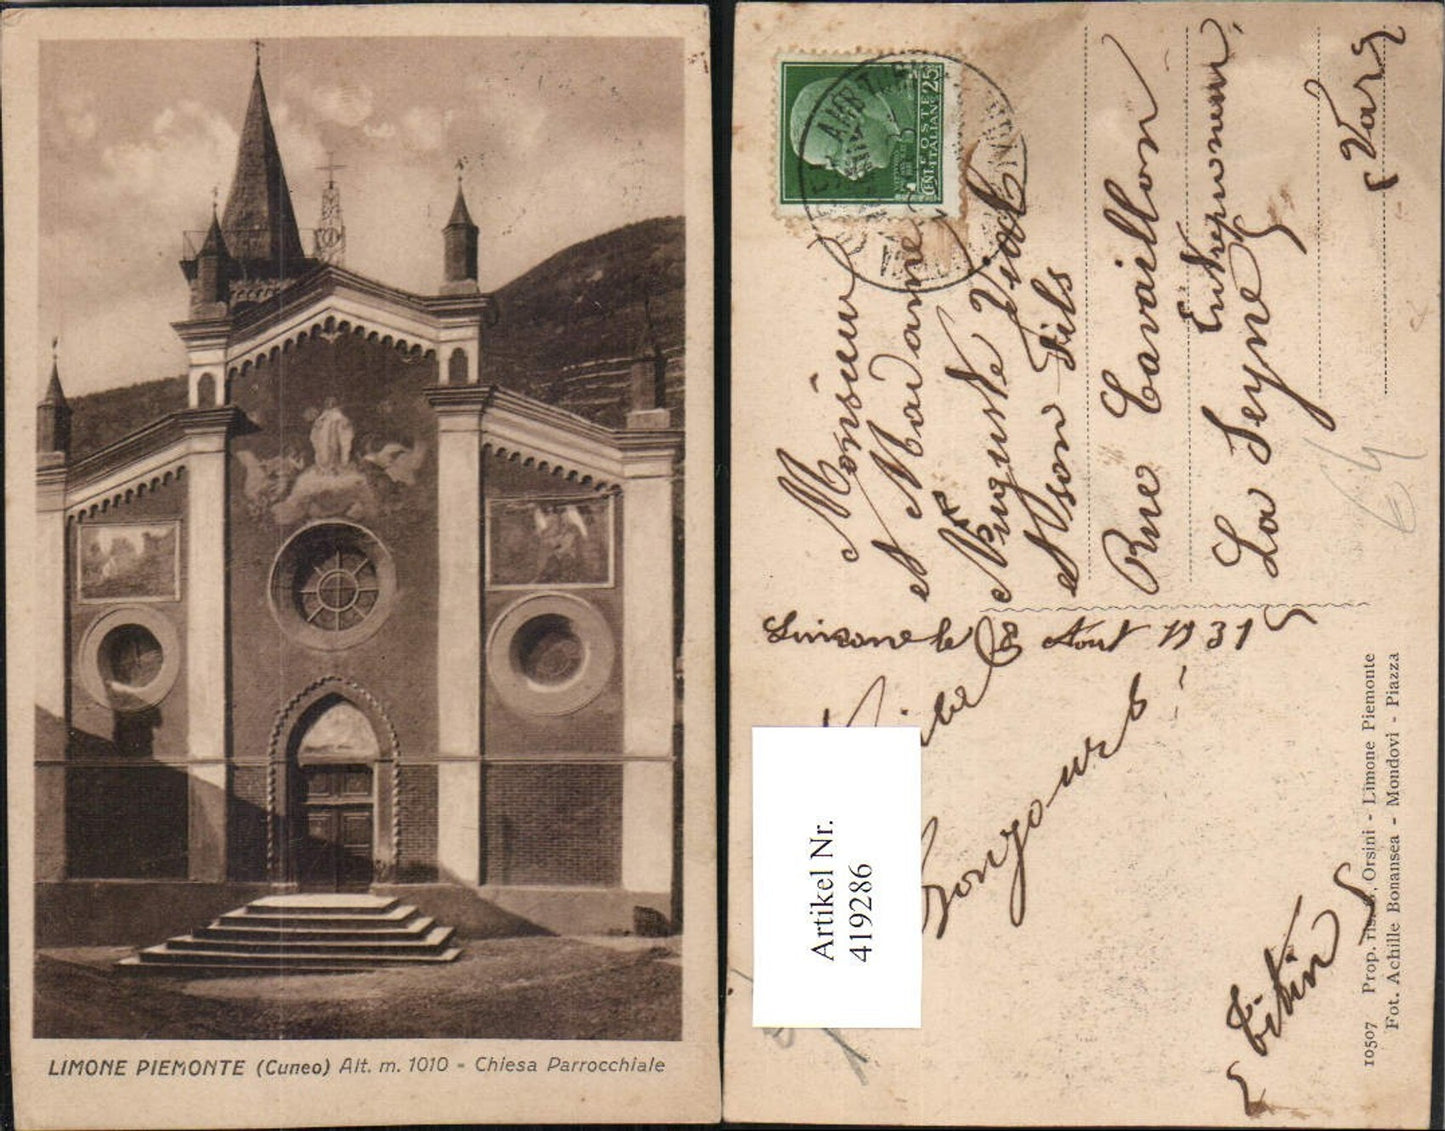 LIMONE PIEMONTE (Cuneo) Alt. m. 1010 - Chiesa Parrocchiale
POSTE
ITALIANE
CENT. 25
Monsieur
et Madame
Auguste Vial
et son Fils
Rue Cavaillon
Entrepreneur,
La Seyne
(Var)
Limone le 8 Aout 1931
Bonjours
Titin
Artikel Nr.
419286
10507 Prop. Orsini - Limone Piemonte
Fot. Achille Bonansea - Mondovi - Piazza